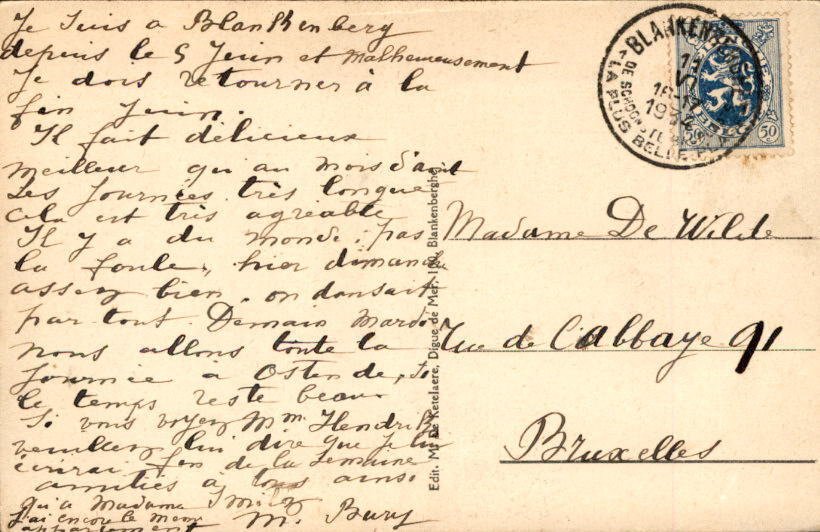 Je suis a Blankenberg
depuis le 5 Juin et malheureusement
Je dois retourner à la
fin Juin.
Il fait délicieux
meilleur qu'au mois d'août
Les Journées très longue
cela est très agréable
Il y a du monde, pas
la foule, hier dimanche
assez bien, on dansait
par tout. Demain Mardi
nous allons toute la
Journée a Ostende, si
le temps reste beau
Si vous voyez Mme Hendrikx
veuillez lui dire que je lui
écrirai fin de la semaine
amitiés à tous ainsi
qu'a Madame Smitz
J'ai encore le même
appartement M. Bury
Edit. M. De Ketelaere, Digue de Mer, 1 0, Blankenberghe
BLANKENBERGHE
LA PLUS BELLE
DE SCHOONSTE
50 50
Madame De Wilde
Rue de l'abbaye 91
Bruxelles